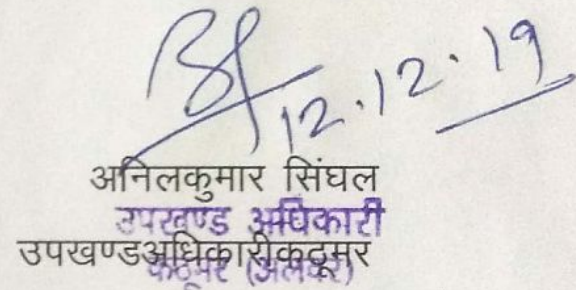 12.12.19
अनिलकुमार सिंघल
उपखण्ड अधिकारी
उपखण्डअधिकारीकठूमर
कठूमर (अलवर)